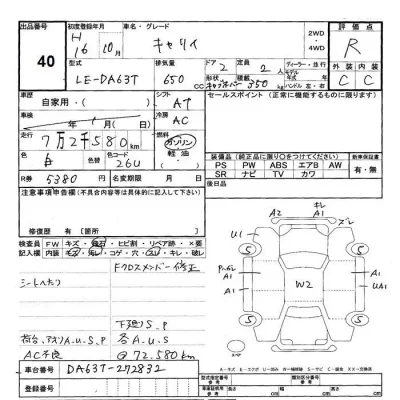 出品番号 初度登録年月 車名・グレード 2WD ・4WD 評価点
40 H 16年 10月 キャリイ R
型式 排気量 ドア 2 定員 2人 ディーラー・並行 外装 内装
LE-DA63T 650 CC 形状 積載 350 kg ハンドル 左・右 C C
車歴 自家用・( ) シフト AT セールスポイント (正常に機能するものに限ります)
車検 年 月( 日) 冷房 AC
走行 7万2千580km 燃料 ガソリン 軽油
色 白 色替 色コード 26U
装備品(純正品に限り〇をつけてください) 新車保証書
PS PW ABS エアB AW 有・無
SR ナビ TV カワ
R券 5380 名変期限 月 日 後日品
注意事項申告欄(不具合内容等は具体的に記入して下さい)
修復歴 有 [箇所 ]
検査員記入欄 FW キズ・飛石・ヒビ割・リペア跡・×要
内装 キズ・汚レ・コゲ・穴・スレ・キレ・破レ
Fクロスメンバー修正
シートへたり
下廻りS.P
荷台、アオリA.U.S.P 各A.U.S
AC不良 @72.580km
車台番号 DA63T-272832
登録番号
キレ
A2 A1 ズレ
U1 A1
5 5
A1 W2 A1
A1 UA1
5 5
A−キズ
型式指定番号 参考 類別区分番号 参考
長さ cm 幅 cm 高さ cm